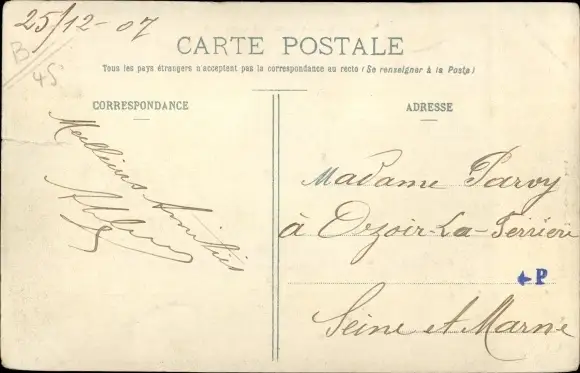 25/12-07
B
45
CARTE POSTALE
Tous les pays étrangers n'acceptent pas la correspondance au recto (Se renseigner à la Poste)
CORRESPONDANCE
Meilleures Amitiés
ADRESSE
Madame Parvy
à Ozoir-La-Ferrière
P
Seine et Marne